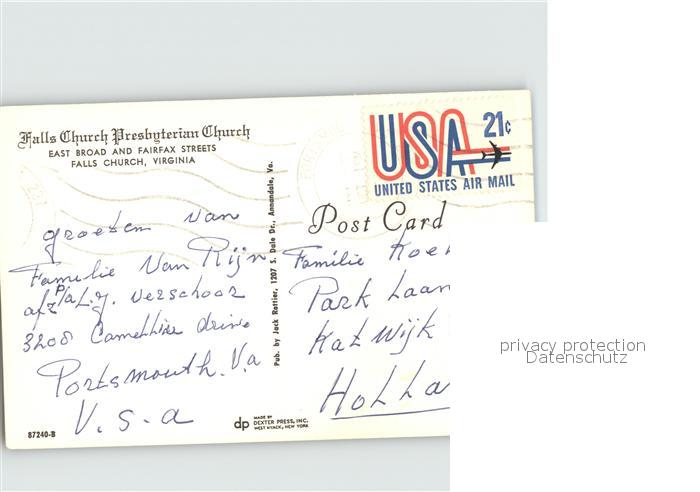 Falls Church Presbyterian Church
EAST BROAD AND FAIRFAX STREETS
FALLS CHURCH, VIRGINIA
USA 21c
UNITED STATES AIR MAIL
Post Card
groeten van
Familie Van Rijn
afz P/a L.J. Verschoor
3208 Camellia drive
Portsmouth. Va
U.S.a
Pub. by Jack Rottier, 1207 S. Dale Dr., Annandale, Va.
Familie
Park Laan
Katwijk
Holla
87240-B
dp MADE BY
DEXTER PRESS, INC.
WEST NYACK, NEW YORK
privacy protection
Datenschutz